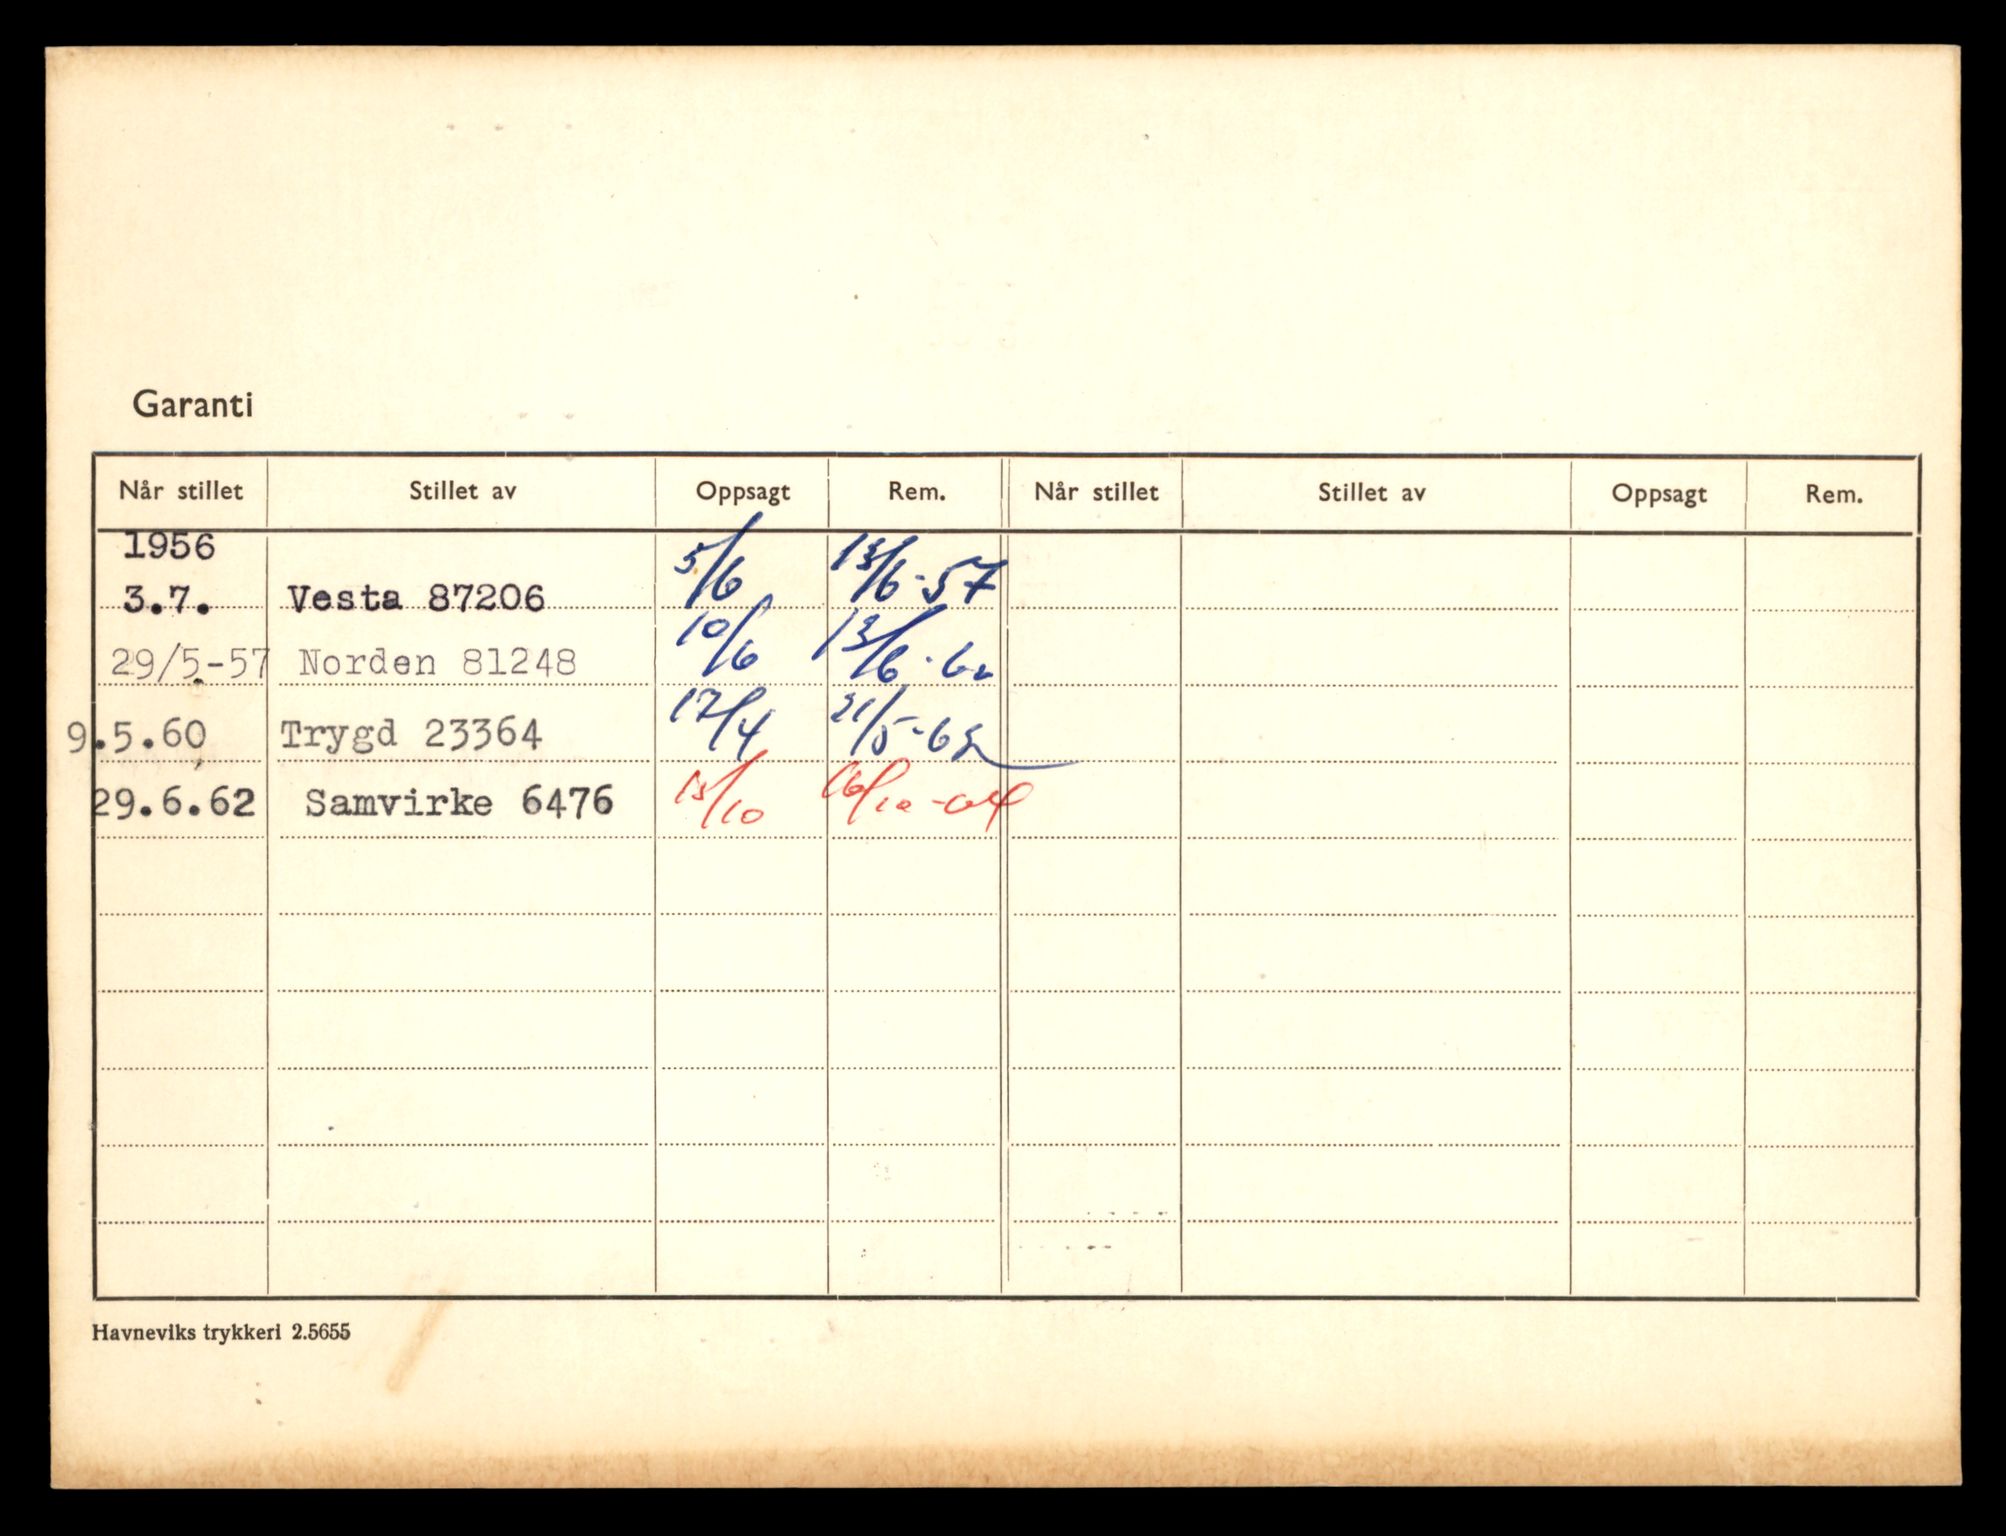 Garanti
Når stillet Stillet av Oppsagt Rem. Når stillet Stillet av Oppsagt Rem.
1956
3.7. Vesta 87206 5/6 13/6-57
29/5-57 Norden 81248 10/6 13/6-60
9.5.60 Trygd 23364 17/4 21/5-62
29.6.62 Samvirke 6476 15/10 16/10-64
Havneviks trykkeri 2.5655